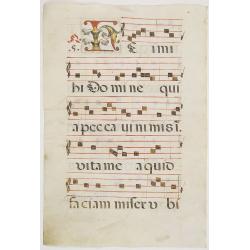 R. 5. H Eimi
hi Do mi ne qui
a pec ca ui ni mis i.
vita me a quid
faciam miser v bi